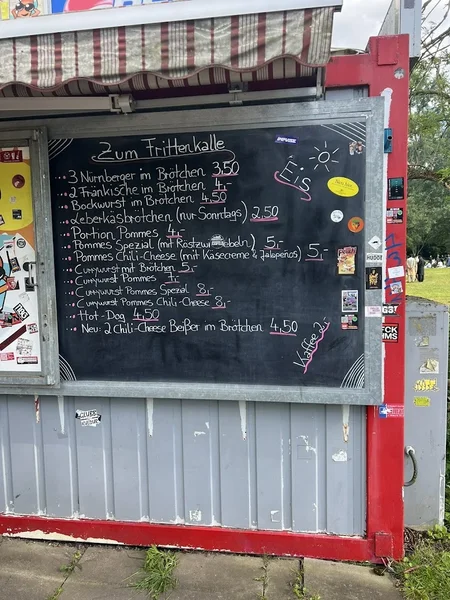 Zum Frittenkalle
3 Nürnberger im Brötchen 3,50
2 Fränkische im Brötchen 4,-
Bockwurst im Brötchen 4,50
Leberkäsbrötchen (nur Sonntags) 2,50
Portion Pommes 4,-
Pommes Spezial (mit Röstzwiebeln) 5,-
Pommes Chili-Cheese (mit Käsecreme & Jalapeños) 5,-
Currywurst mit Brötchen 5,-
Currywurst Pommes 7,-
Currywurst Pommes Spezial 8,-
Currywurst Pommes Chili-Cheese 8,-
Hot-Dog 4,50
Neu: 2 Chili-Cheese Beißer im Brötchen 4,50
Eis
Kaffee 2,-